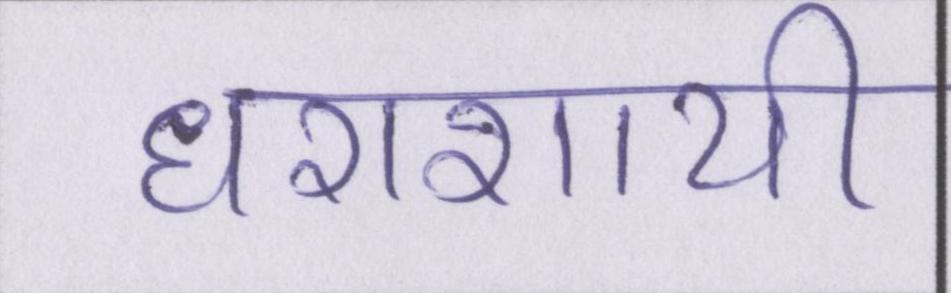 धराशायी